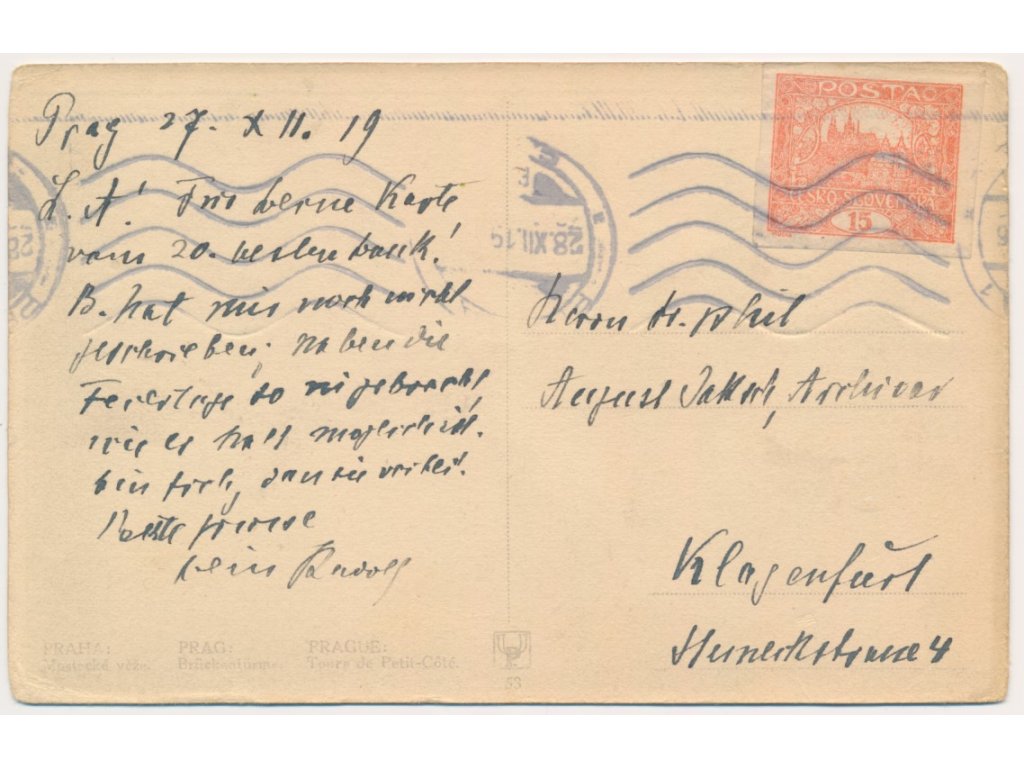 Prag 27. XII. 19
L. A.! Für deine Karte
vom 20. besten Dank!
B. hat mir noch nicht
geschrieben; haben die
Feiertage so
wie es halt möglich ist.
bin froh, dass sie vorbei.
Beste Grüsse
dein Rudolf
POSTA
ČESKO-SLOVENSKÁ
15
28.XII.19
Herrn dr. phil
August Jaksch, Archivar
Klagenfurt
4
PRAHA: PRAG: PRAGUE:
Mostecké věže. Brückentürme. Tours de Petit-Côté.
53